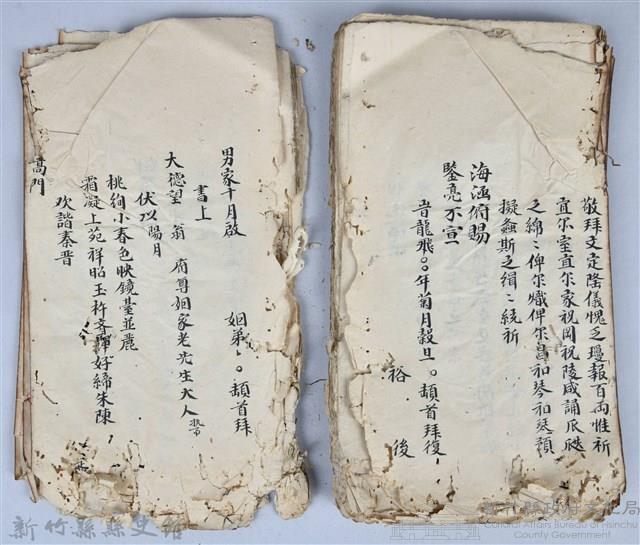 敬拜文定隆儀愧乏瓊報百兩惟祈
宜尔室宜尔家祝岡祝陵咸誦瓜瓞
之綿綿俾尔熾俾尔昌和琴和瑟頌
擬螽斯之緝緝統祈
海涵俯賜
鑒亮不宣
旨龍飛○○年菊月穀旦。頡首拜復
裕後
男家十月啟
姻弟。頡首拜
書上
大德望小翁 府尊姻家老先生大人
伏以陽月
桃絢小春色映鏡臺並麗
霜凝上苑祥昭玉杵 好締朱陳
欢諧秦晉
高門
新竹縣縣史館
新竹縣政府文化局
Cultural Affairs Bureau of Hsinchu
County Government